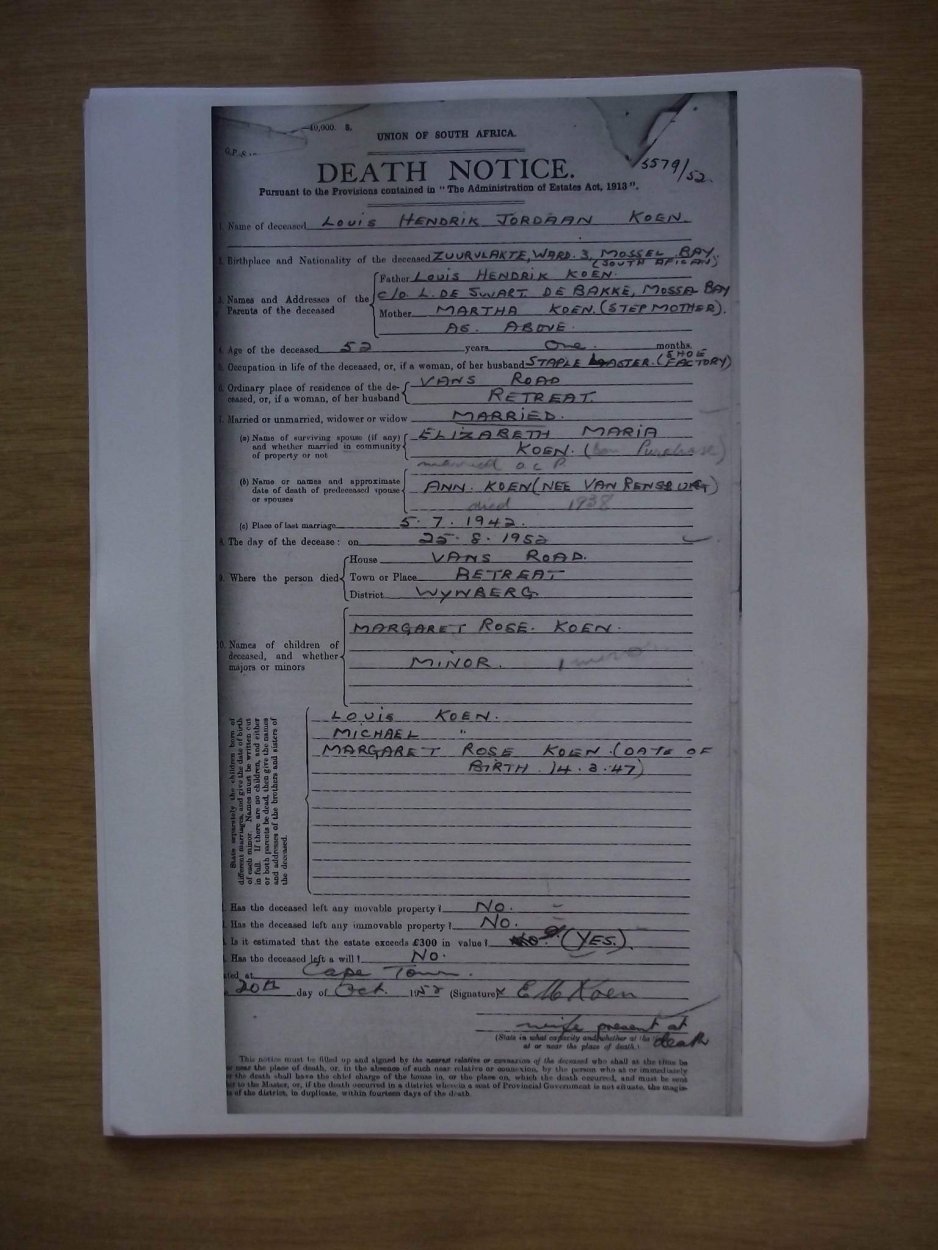 —40,000. S.
G.P.-S.
UNION OF SOUTH AFRICA.
5579/52.
DEATH NOTICE.
Pursuant to the Provisions contained in "The Administration of Estates Act, 1913".
1. Name of deceased LOUIS HENDRIK JORDAAN KOEN
2. Birthplace and Nationality of the deceased ZUURVLAKTE, WARD. 3, MOSSEL BAY.
(SOUTH AFICAN)
Father LOUIS HENDRIK KOEN.
3. Names and Addresses of the Parents of the deceased
c/o. L. DE SWART. DE BAKKE, MOSSEL BAY
Mother MARTHA KOEN. (STEP MOTHER).
AS. ABOVE.
4. Age of the deceased 52 years One months.
5. Occupation in life of the deceased, or, if a woman, of her husband STAPLE LASTER. (SHOE FACTORY)
6. Ordinary place of residence of the de-
ceased, or, if a woman, of her husband
VANS ROAD
RETREAT.
7. Married or unmarried, widower or widow MARRIED.
(a) Name of surviving spouse (if any)
and whether married in community
of property or not
ELIZABETH MARIA
KOEN.
O C P
(b) Name or names and approximate
date of death of predeceased spouse
or spouses
ANN. KOEN (NEE VAN RENSBURG)
died 1938
(c) Place of last marriage 5. 7. 1942.
8. The day of the decease: on 25. 8. 1952
9. Where the person died
House VANS ROAD.
Town or Place RETREAT
District WYNBERG.
10. Names of children of
deceased, and whether
majors or minors
MARGARET ROSE. KOEN.
MINOR. 1 minor
State separately the children born of
different marriages, and give the date of birth
of each minor. Names must be written out
in full. If there are no children, and either
or both parents be dead, then give the names
and addresses of the brothers and sisters of
the deceased.
LOUIS KOEN.
MICHAEL "
MARGARET ROSE KOEN. (DATE OF
BIRTH. 14. 3. 47)
Has the deceased left any movable property? No.
Has the deceased left any immovable property? No.
Is it estimated that the estate exceeds £300 in value? (YES.)
Has the deceased left a will? No.
ted at Cape Town.
20th day of Oct. 1952 (Signature) X E M Koen
wife present at
death
(State in what capacity and whether at the
at or near the place of death.)
This notice must be filled up and signed by the nearest relative or connexion of the deceased who shall at the time be
or near the place of death, or, in the absence of such near relative or connexion, by the person who at or immediately
the death shall have the chief charge of the house in, or the place on, which the death occurred, and must be sent
to the Master, or, if the death occurred in a district wherein a seat of Provincial Government is not situate, the magis-
of the district, in duplicate, within fourteen days of the death.